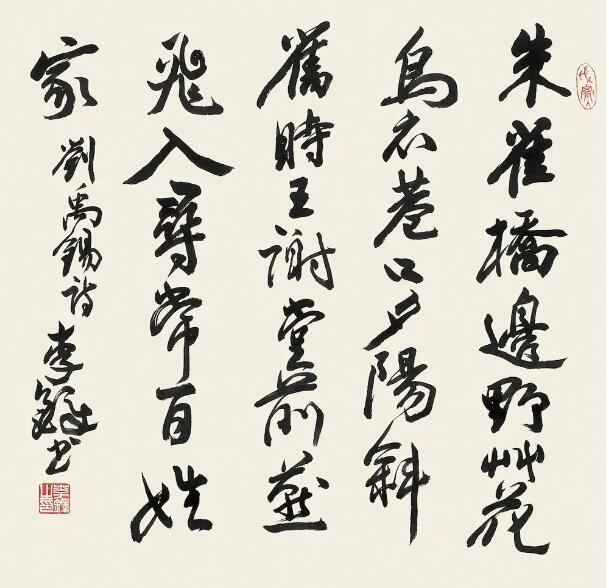 朱雀橋邊野艸花
烏衣巷口夕陽斜
舊時王謝堂前燕
飛入尋常百姓
家
劉禹錫詩
李鐸書